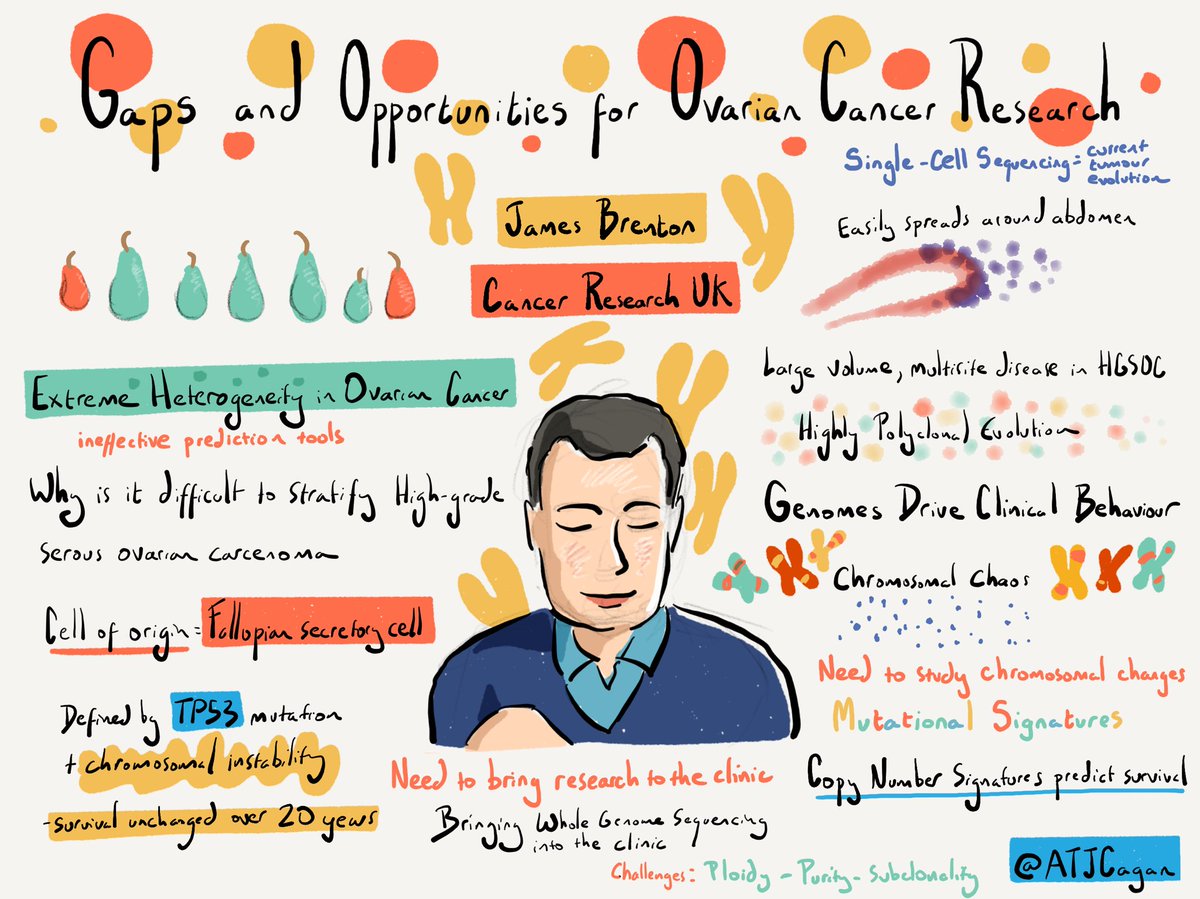 Gaps and Opportunities for Ovarian Cancer Research
James Brenton
Cancer Research UK
Extreme Heterogeneity in Ovarian Cancer
ineffective prediction tools
Why is it difficult to stratify High-grade
serous ovarian carcenoma
Cell of origin = Fallopian secretory cell
Defined by TP53 mutation
+ chromosomal instability
- survival unchanged over 20 years
Need to bring research to the clinic
Bringing Whole Genome Sequencing
into the clinic
Challenges: Ploidy - Purity - Subclonality
Single-Cell Sequencing = current
tumour
evolution
Easily spreads around abdomen
Large volume, multisite disease in HGSOC
Highly Polyclonal Evolution
Genomes Drive Clinical Behaviour
Chromosomal Chaos
Need to study chromosomal changes
Mutational Signatures
Copy Number Signatures predict survival
@ATJCagan